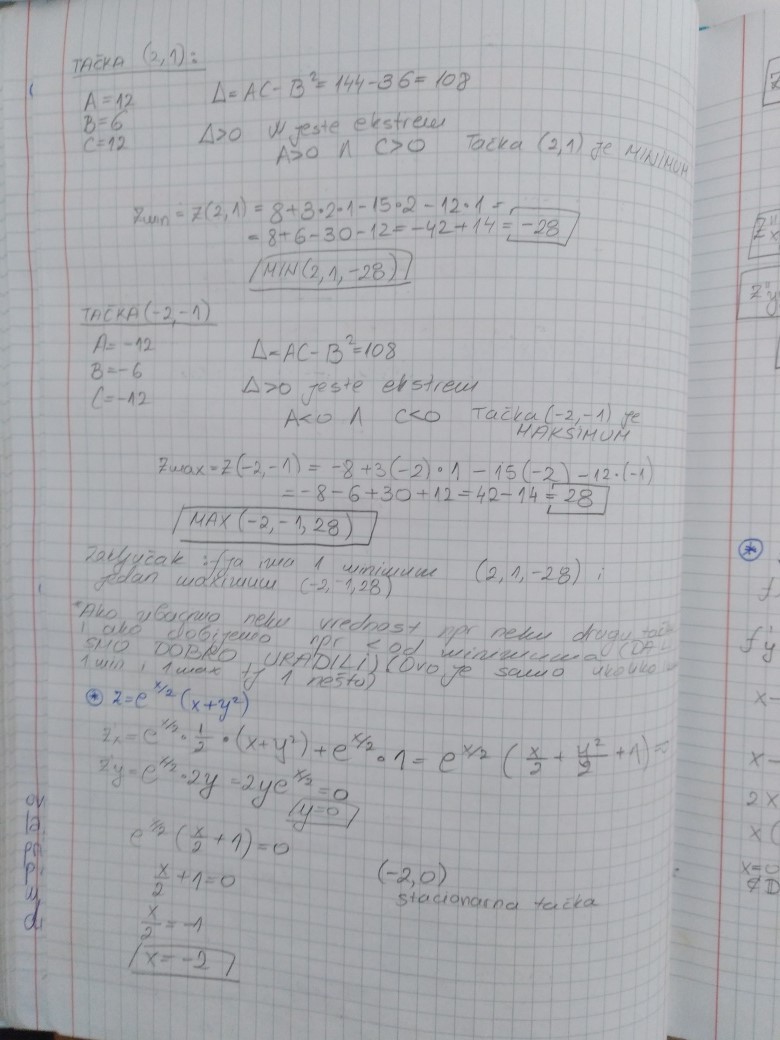 TAČKA (2,1):
A=12 Δ=AC-B²=144-36=108
B=6
C=12 Δ>0 jeste ekstrem
A>0 Λ C>0 Tačka (2,1) je MINIMUM
Zmin = Z(2,1) = 8+3•2•1-15•2-12•1=
= 8+6-30-12=-42+14=-28
MIN(2,1,-28)
TAČKA(-2,-1)
A=-12 Δ=AC-B²=108
B=-6
C=-12 Δ>0 jeste ekstrem
A<0 Λ C<0 Tačka(-2,-1) je
MAKSIMUM
Zmax=Z(-2,-1) = -8+3(-2)•1-15(-2)-12•(-1)
=-8-6+30+12=42-14=28
MAX(-2,-1,28)
f-ja ima 1 minimum (2,1,-28) i
jedan maximum (-2,-1,28)
*Ako ubacimo neku vrednost npr neku drugu
i ako dobijemo npr < od minimuma (DA
SMO DOBRO URADILI) (Ovo je samo ukoliko
1 min, 1 max, 1 nešto)
⊛ z=e^x/2 (x+y²)
Z'x=e^x/2•1/2•(x+y²)+e^x/2•1= e^x/2 (x/2+y²/2+1)=
Z'y=e^x/2•2y=2ye^x/2=0
y=0
e^x/2(x/2+1)=0
x/2+1=0 (-2,0)
stacionarna tačka
x/2=-1
x=-2